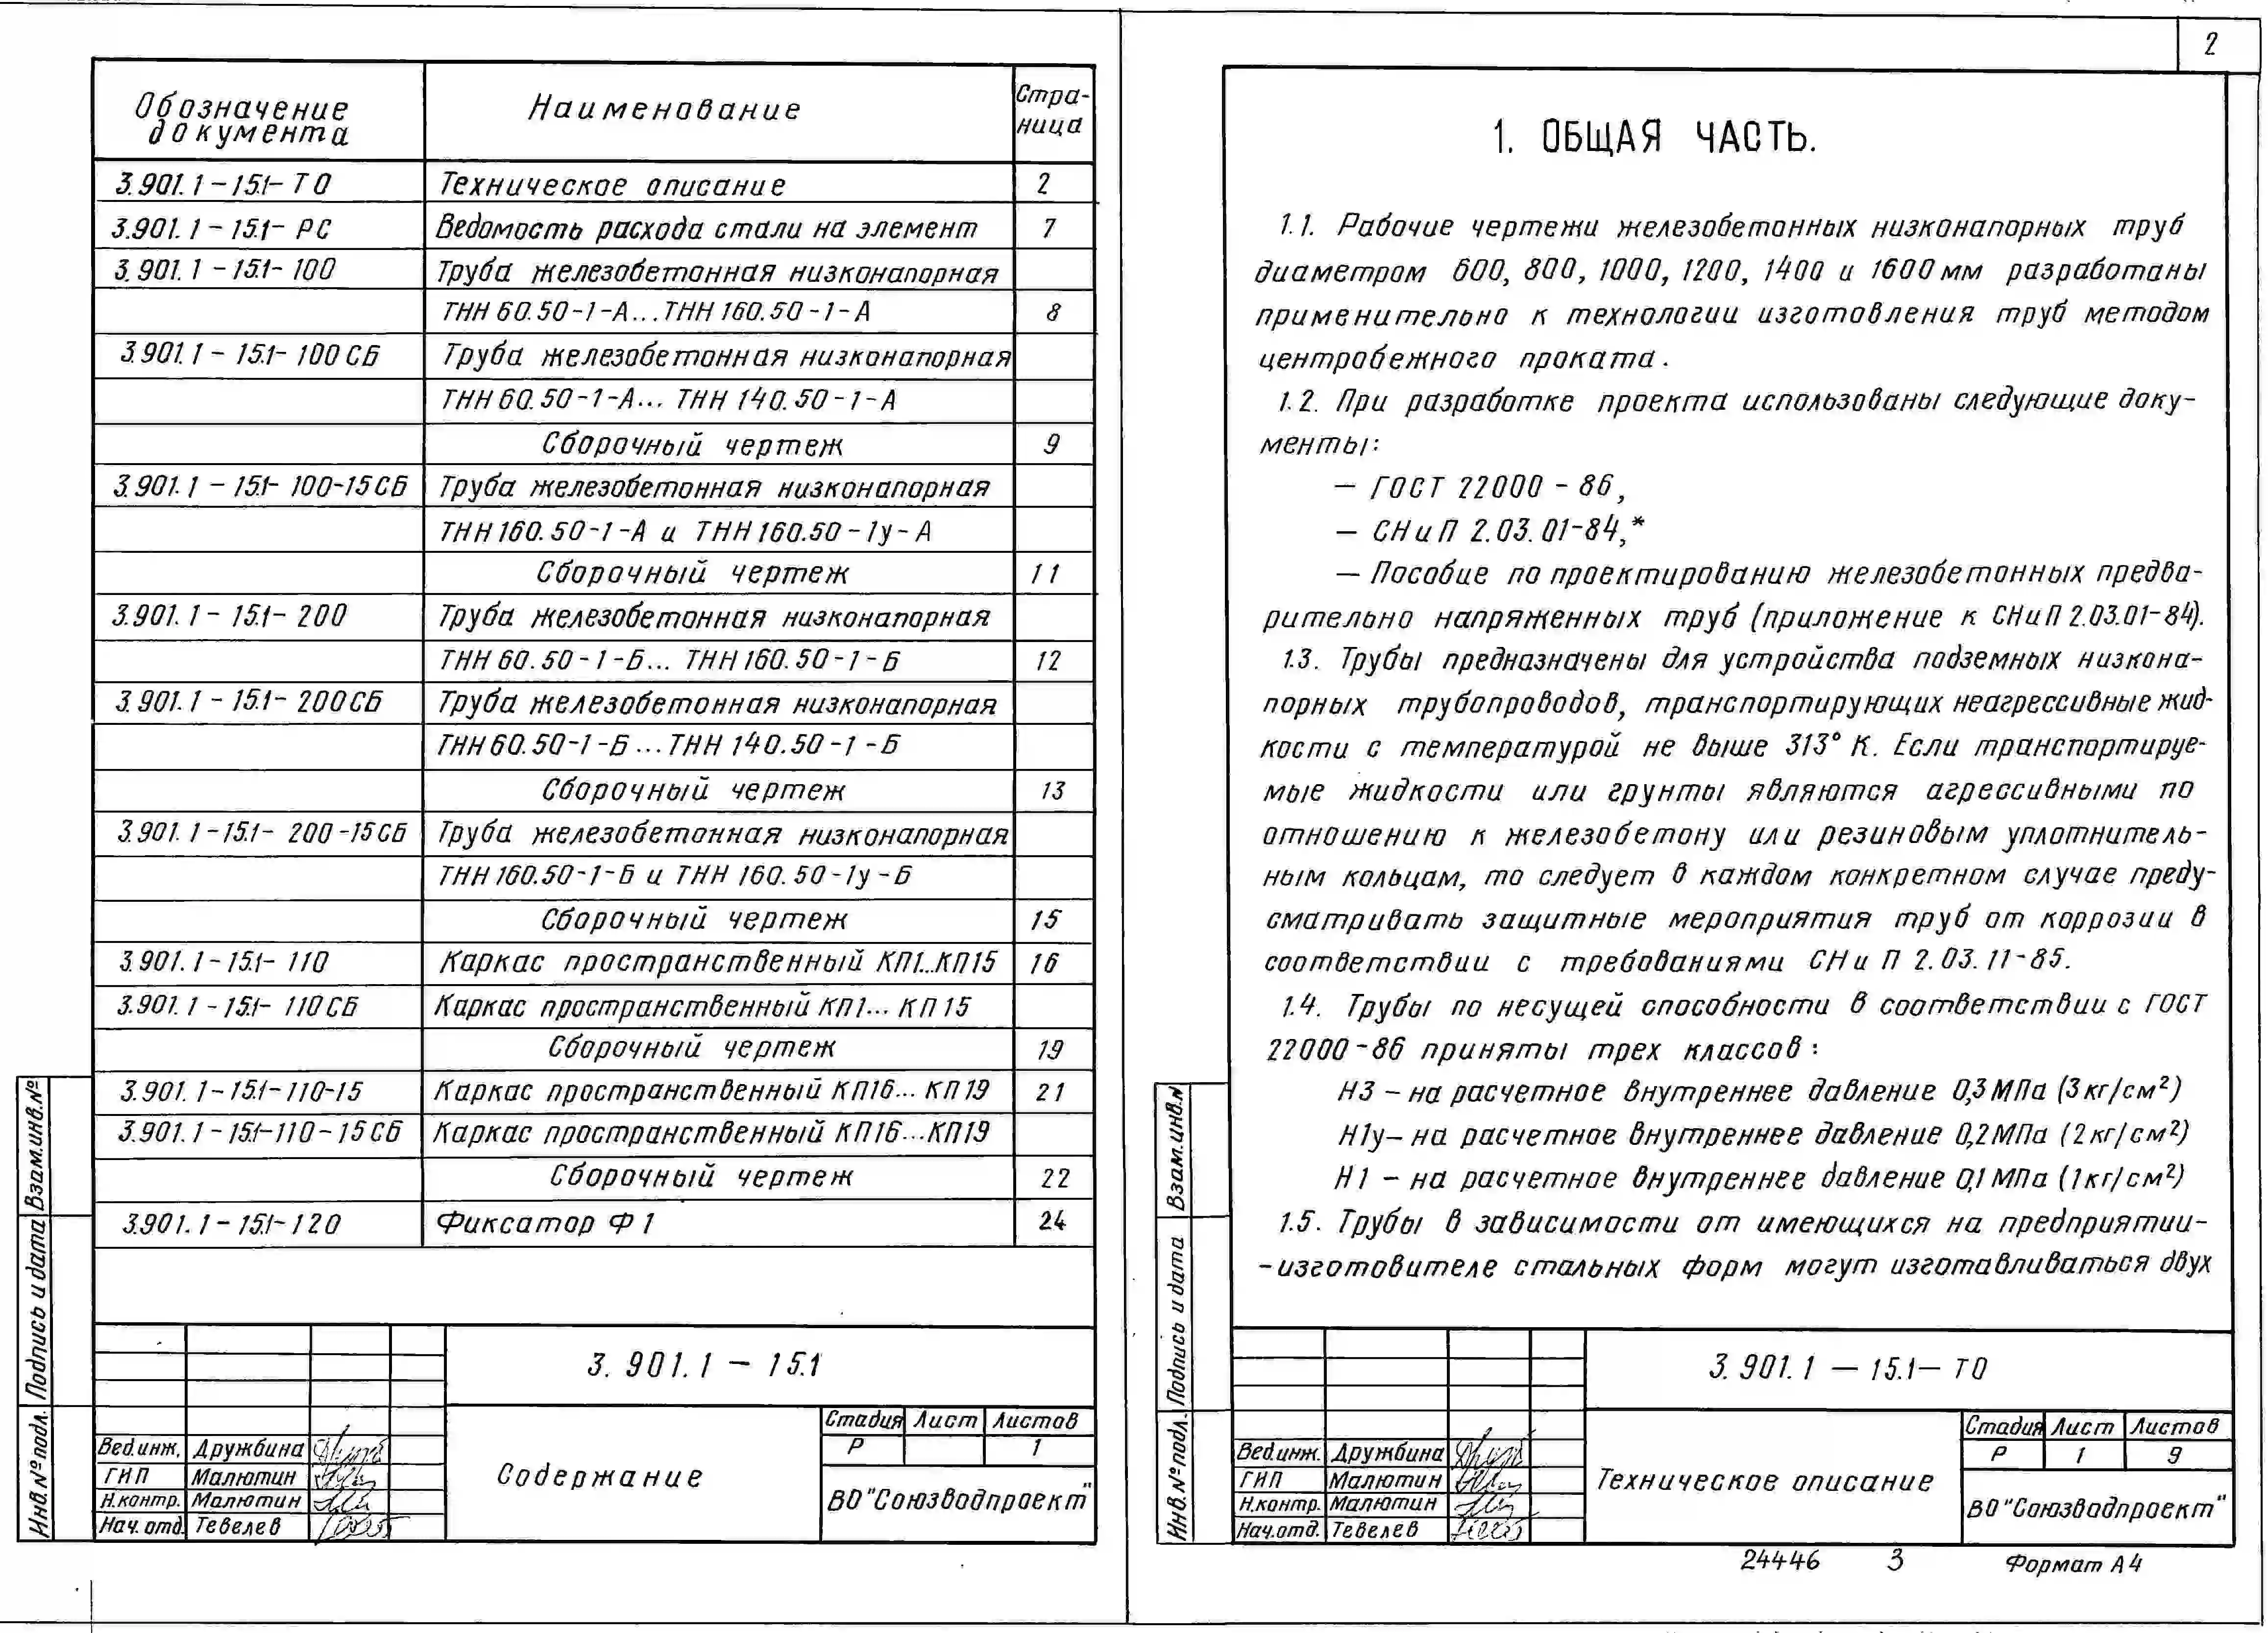 Обозначение документа Наименование Стра-ница
3.901.1-15.1-ТО Техническое описание 2
3.901.1-15.1-РС Ведомость расхода стали на элемент 7
3.901.1-15.1-100 Труба железобетонная низконапорная
ТНН 60.50-1-А...ТНН 160.50-1-А 8
3.901.1-15.1-100СБ Труба железобетонная низконапорная
ТНН 60.50-1-А... ТНН 140.50-1-А
Сборочный чертеж 9
3.901.1-15.1-100-15СБ Труба железобетонная низконапорная
ТНН 160.50-1-А и ТНН 160.50-1у-А
Сборочный чертеж 11
3.901.1-15.1-200 Труба железобетонная низконапорная
ТНН 60.50-1-Б... ТНН 160.50-1-Б 12
3.901.1-15.1-200СБ Труба железобетонная низконапорная
ТНН 60.50-1-Б...ТНН 140.50-1-Б
Сборочный чертеж 13
3.901.1-15.1-200-15СБ Труба железобетонная низконапорная
ТНН 160.50-1-Б и ТНН 160.50-1у-Б
Сборочный чертеж 15
3.901.1-15.1-110 Каркас пространственный КП1...КП15 16
3.901.1-15.1-110СБ Каркас пространственный КП1...КП15
Сборочный чертеж 19
3.901.1-15.1-110-15 Каркас пространственный КП16...КП19 21
3.901.1-15.1-110-15СБ Каркас пространственный КП16...КП19
Сборочный чертеж 22
3.901.1-15.1-120 Фиксатор Ф1 24
Инв.№подл. Подпись и дата Взам.инв.№
3.901.1-15.1
Стадия Лист Листов
Вед.инж. Дружбина Р 1
ГИП Малютин Содержание
Н.контр. Малютин ВО"Союзводпроект"
Нач.отд. Тевелев
2
1. ОБЩАЯ ЧАСТЬ.
1.1. Рабочие чертежи железобетонных низконапорных труб
диаметром 600, 800, 1000, 1200, 1400 и 1600мм разработаны
применительно к технологии изготовления труб методом
центробежного проката.
1.2. При разработке проекта использованы следующие доку-
менты:
— ГОСТ 22000-86,
— СНиП 2.03.01-84,*
— Пособие по проектированию железобетонных предва-
рительно напряженных труб (приложение к СНиП 2.03.01-84).
1.3. Трубы предназначены для устройства подземных низкона-
порных трубопроводов, транспортирующих неагрессивные жид-
кости с температурой не выше 313° К. Если транспортируе-
мые жидкости или грунты являются агрессивными по
отношению к железобетону или резиновым уплотнитель-
ным кольцам, то следует в каждом конкретном случае преду-
сматривать защитные мероприятия труб от коррозии в
соответствии с требованиями СНиП 2.03.11-85.
1.4. Трубы по несущей способности в соответствии с ГОСТ
22000-86 приняты трех классов:
Н3 - на расчетное внутреннее давление 0,3МПа (3кг/см²)
Н1у- на расчетное внутреннее давление 0,2МПа (2кг/см²)
Н1 - на расчетное внутреннее давление 0,1МПа (1кг/см²)
1.5. Трубы в зависимости от имеющихся на предприятии-
-изготовителе стальных форм могут изготавливаться двух
Инв.№подл. Подпись и дата Взам.инв.№
3.901.1 — 15.1— ТО
Стадия Лист Листов
Вед.инж. Дружбина Р 1 9
ГИП Малютин Техническое описание
Н.контр. Малютин ВО"Союзводпроект"
Нач.отд. Тевелев
24446 3 Формат А4